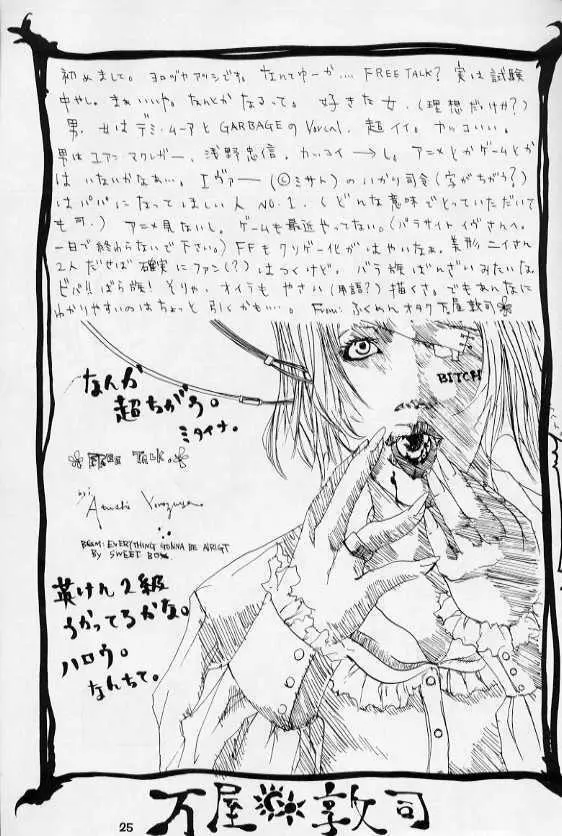 初めまして。ヨロヅヤアツシです。なんてゆーか… FREE TALK? 実は試験
中やし。まぁいいや。なんとかなるって。好きな女、(理想だけか?)
男、女はデミ・ムーアとGARBAGEのVocal、超イイ。カッコいい。
男はユアン・マクレガー、浅野忠信。カッコイーし。アニメとかゲームとか
はいないかなあ…。エヴァー(©ミサト)のいかり司令(字がちがう?)
はパパになってほしい人NO.1。(どんな意味でとっていただいて
も可。) アニメ見ないし。ゲームも最近やってない。(パラサイトイヴさんへ。
一日で終わらないで下さい。) FFもクソゲー化がはやいなぁ。美形ニイさん
2人だせば確実にファン(?)はつくけど。バラ族ばんざいみたいな
ビバ!!ばら族!そりゃ、オイラもやさい(用語?)描くさ。でもあんなに
わかりやすいのはちょっと引くかもい…。From: ふくめんオタク万屋敦司
BITCH
なんか
超ちがう。
ミタイナ。
FREE TALK.
by:
Atsushi Yorozuya
BGM: EVERYTHING GONNA BE AIRIGT
BY SWEET BOX
英けん2級
うかってるかな。
ハロウ。
なんちて。
25
万屋敦司